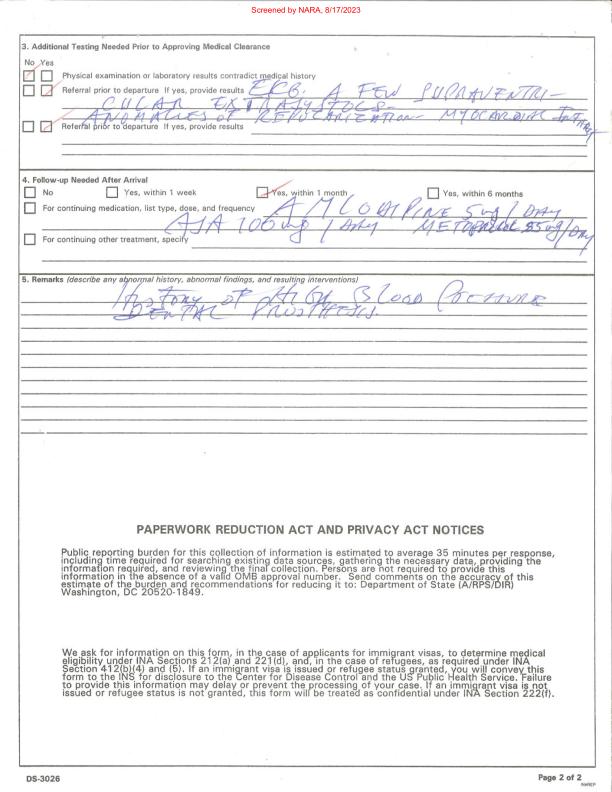 Screened by NARA, 8/17/2023
3. Additional Testing Needed Prior to Approving Medical Clearance
No Yes
Physical examination or laboratory results contradict medical history
Referral prior to departure If yes, provide results ECG. A FEW SUPRAVENTRI-
CULAR EXTRASYSTOLS-
ANOMALIES of REPOLARIZATION - MYOCARDIAC
Referral prior to departure If yes, provide results
4. Follow-up Needed After Arrival
No Yes, within 1 week Yes, within 1 month Yes, within 6 months
For continuing medication, list type, dose, and frequency AMLODIPINE 5 mg / DAY
ASA 100 mg / DAY METOPROLOL mg/DAY
For continuing other treatment, specify
5. Remarks (describe any abnormal history, abnormal findings, and resulting interventions)
History of High Blood Pressure
DENTAL PROSTHESIS.
PAPERWORK REDUCTION ACT AND PRIVACY ACT NOTICES
Public reporting burden for this collection of information is estimated to average 35 minutes per response,
including time required for searching existing data sources, gathering the necessary data, providing the
information required, and reviewing the final collection. Persons are not required to provide this
information in the absence of a valid OMB approval number. Send comments on the accuracy of this
estimate of the burden and recommendations for reducing it to: Department of State (A/RPS/DIR)
Washington, DC 20520-1849.
We ask for information on this form, in the case of applicants for immigrant visas, to determine medical
eligibility under INA Sections 212(a) and 221(d), and, in the case of refugees, as required under INA
Section 412(b)(4) and (5). If an immigrant visa is issued or refugee status granted, you will convey this
form to the INS for disclosure to the Center for Disease Control and the US Public Health Service. Failure
to provide this information may delay or prevent the processing of your case. If an immigrant visa is not
issued or refugee status is not granted, this form will be treated as confidential under INA Section 222(f).
DS-3026
Page 2 of 2